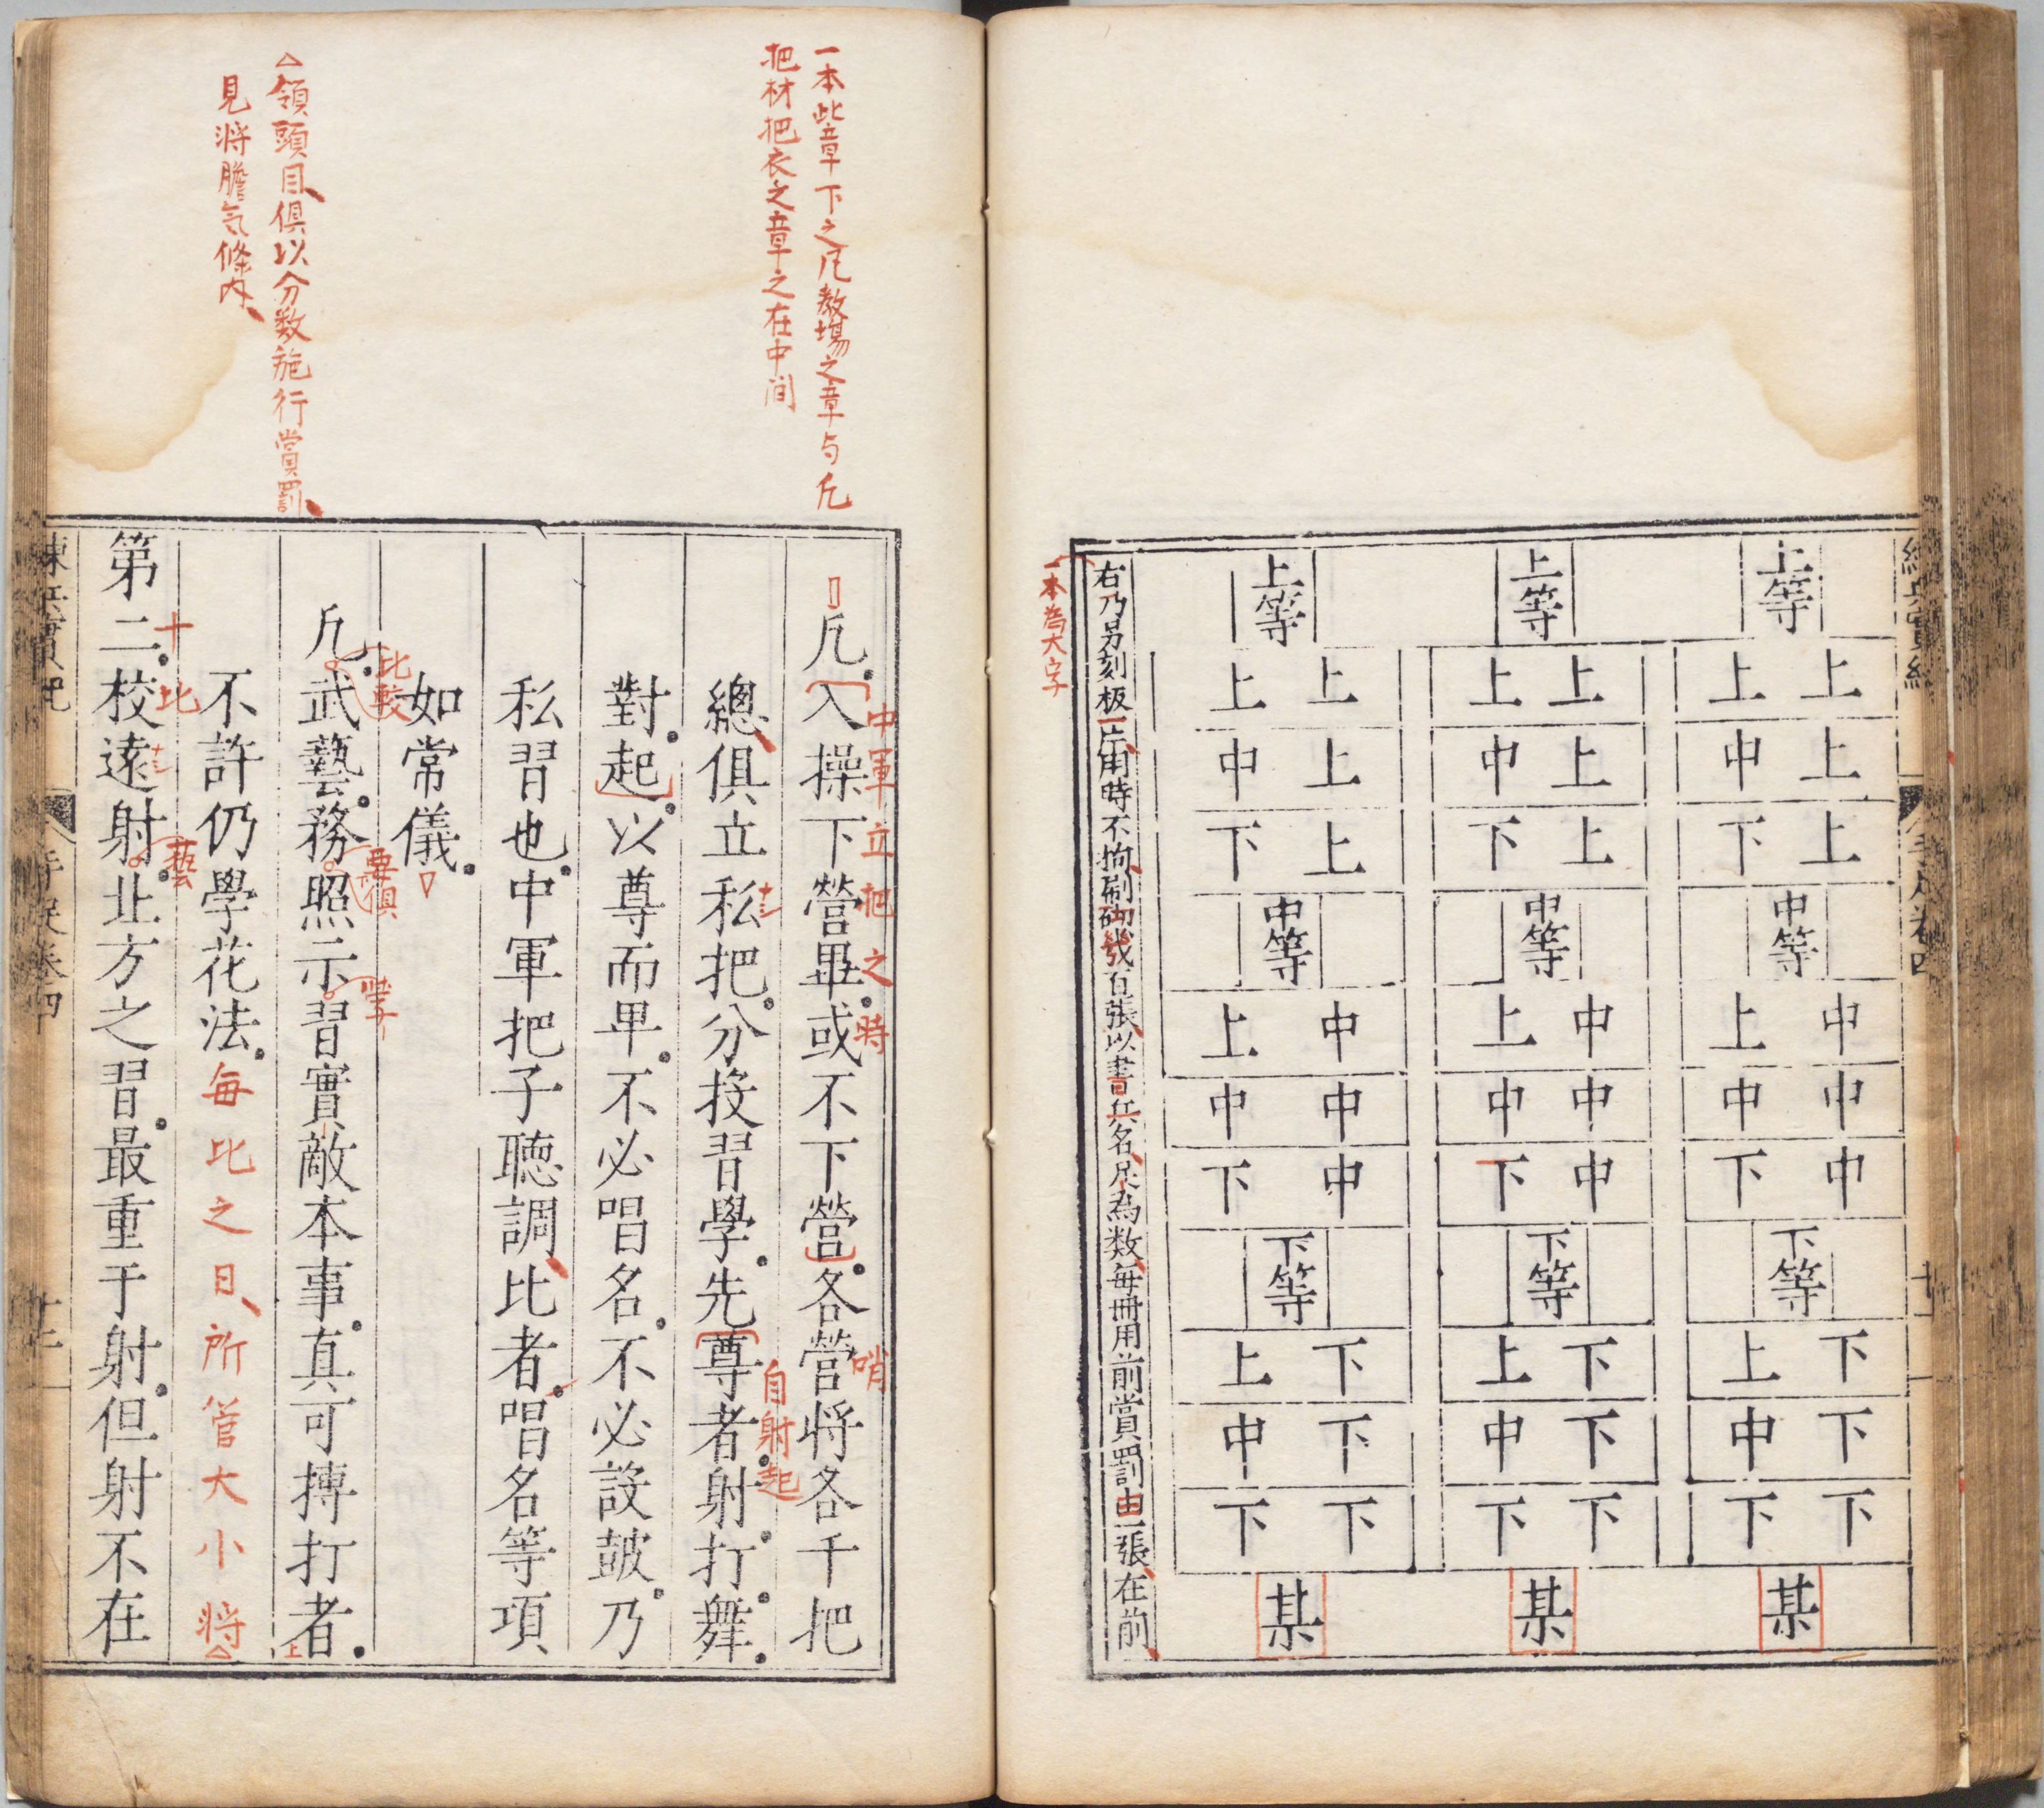 上等 上等 上等
上上 上上 上上
上中 上中 上中
上下 上下 上下
中等 中等 中等
中上 中上 中上
中中 中中 中中
中下 中下 中下
下等 下等 下等
下上 下上 下上
下中 下中 下中
下下 下下 下下
某 某 某
右乃另刻板一片用時不拘刷印幾百張以書兵名尽為数每冊用前賞罰由一張在前
一本為大字
一本此章下之凢教場之章与凢
把材把衣之章之在中间
凢入操下營畢或不下營各營将各千把
中軍立把之時
哨
總俱立私把分投習學先尊者射打舞
自射起
對起以尊而卑不必唱名不必設皷乃
私習也中軍把子聴調比者唱名等項
如常儀
凢武藝務照示習實敵本事真可摶打者
比較
要俱
學
不許仍學花法每比之日所管大小将
△領頭目俱以分数施行賞罰
見将膽気條内
第二校遠射止方之習最重于射但射不在
十比
藝